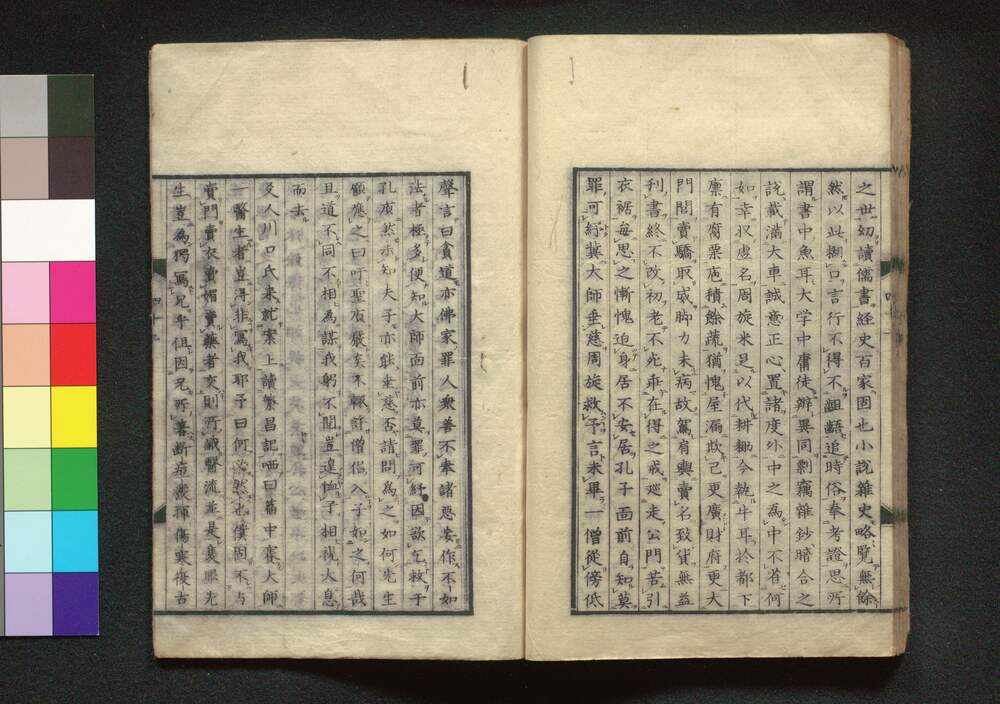 之世幼讀儒書経史百家固也小説雜史略覽無餘
然以此糊口言行不得不齟齬追時俗奉考證思所
謂書中魚耳大学中庸徒辨異同剽竊雜鈔暗合之
説載滿大車誠意正心置諸度外中之為中不省何
如幸収虚名周旋米足以代耕耡今乾牛耳於都下
廩有腐粟庖積餘蔬猶愧屋漏欺己更廣財府更大
門閭賣驕取威脚力未病故駕肩輿賣名致貨無益
利書終不改初老不光乖在得之戒廵走公門苦引
衣裾每思之慚愧迫身居不安居孔子面前自知莫
罪可紓冀大師垂慈周旋救予言未畢一僧從傍低
聲言曰貧道亦佛家罪人衆善不奉諸惡妄作不如
法者極多便知大師面前亦莫罪可紓因欲乞救于
孔廣然未知夫子亦能垂慈否請問為之如何先生
顰蹙之曰吁聖府嚴矣不輙許僧侶入子如之何哉
且道不同不相為謀我躬不閲豈遑恤子相視大息
而去
爻人川口氏来就案上讀繁昌記哂曰篇中賽大師
一醫生者豈得非寫我耶子曰何必然也憤固不与
賣門賣衣賣媚賣藥者交則所識醫流並是裏眼先
生豈為獨寫兄乎但因兄所喜斷並發揮傷寒復古